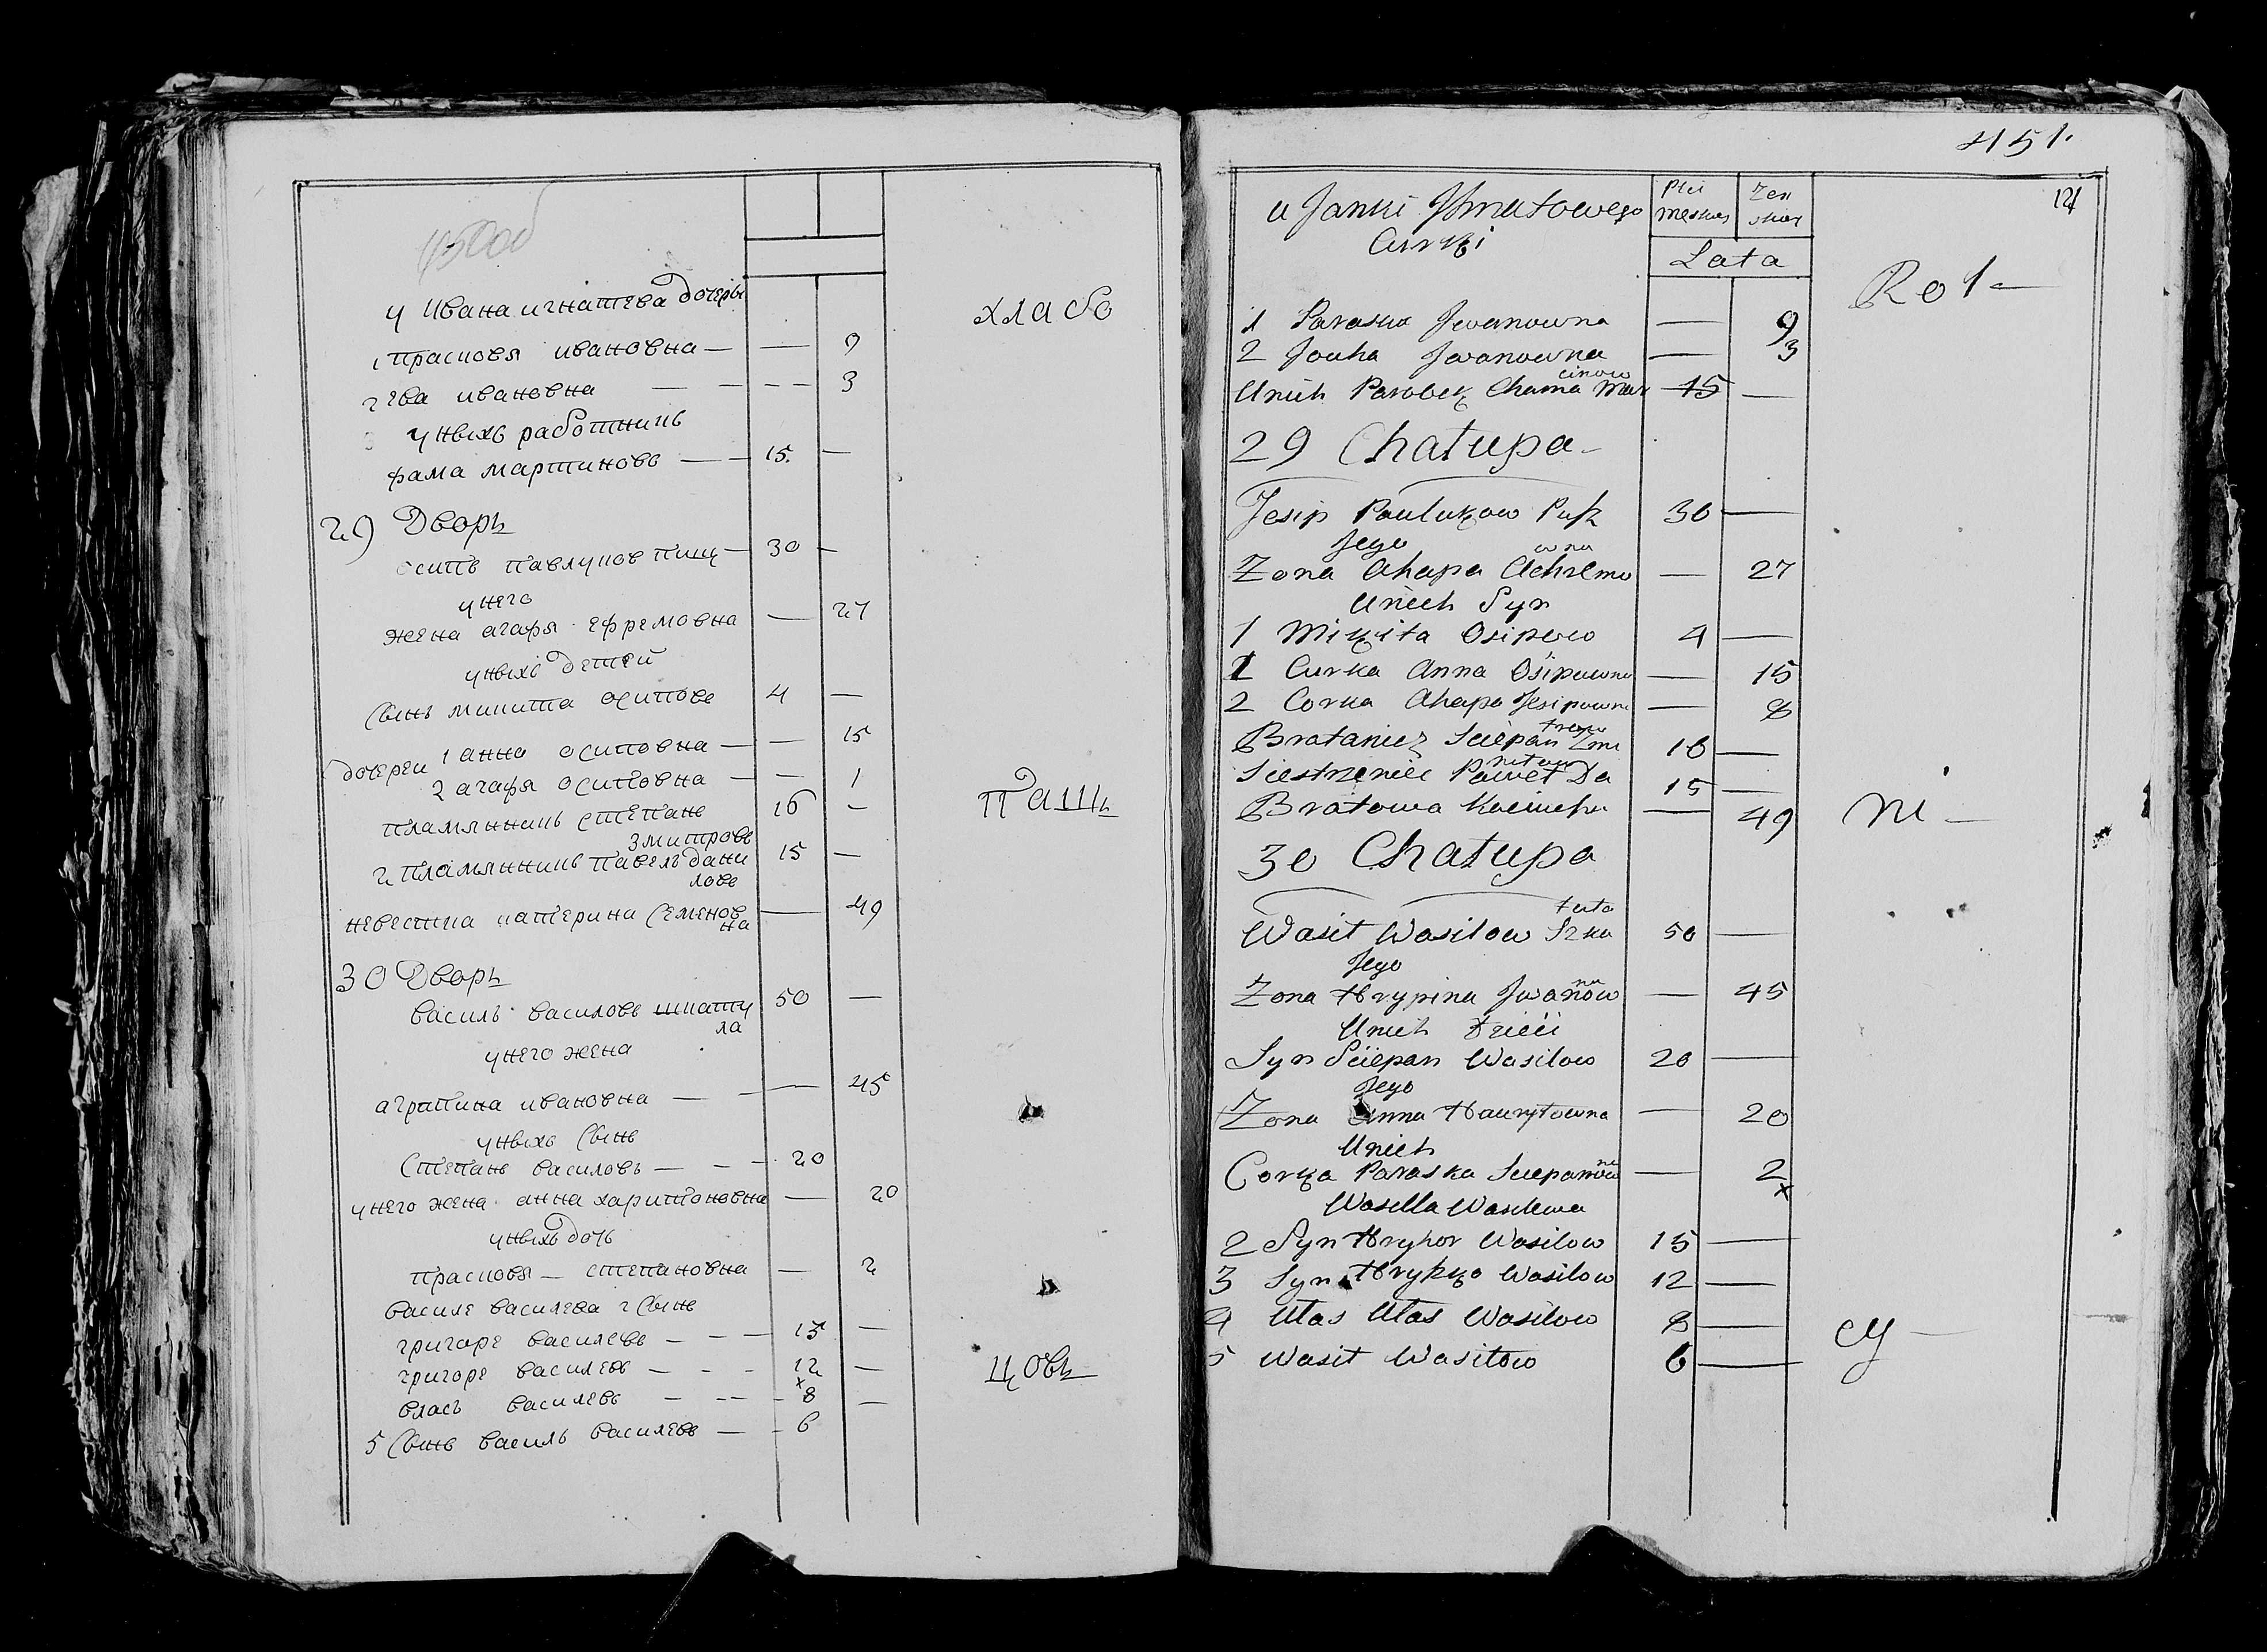 450об
у Ивана игнатева дочеры
1 прасковя ивановна — — 9
2 ева ивановна — — — — 3
хлабо
у ныхъ работникъ
фама мартиновъ — — 15. —
29 Дворъ
осипъ павлуков пищ — 30 —
у него
жена агафя ефремовна — 27
у ныхъ детей
Сынъ микита осиповъ 4 —
дочереи 1 анна осиповна — — 15
2 агафя осиповна — — 1
пламынникъ степанъ 16 —
змитровъ
пащъ
2 пламынникъ павелъ дани 15 —
ловъ
невестка катерина Семенов — 49
на
30 Дворъ
василь василовъ шкату 50 —
ла
у него жена
агрипина ивановна — — — 45
у ныхъ Сынъ
Степанъ василовъ — — — 20
у него жена анна харитоновна — 20
у ныхъ дочь
прасковя — степановна — 2
василе василева 2 Сынъ
григоре василевъ — — — 15 —
григоре василевъ — — — 12 —
цовъ
власъ василевъ — — — — x 8 —
5 Сынъ василь василевъ — — 6
451.
121
u Janki Ihnatowego
Curki
Plci meskey Zen skey
Lata
Rot —
1 Paraska Jwanowna — 9
2 Jouha Jwanowna — 3
cinow
Unich Parobek Chama Mar 15 —
29 Chałupa —
Jesip Paulukow Pusz 30 —
Jego owna
Zona Ahapa Achremo — 27
Unich Syn
1 Mikita Osipow 4 —
1 Curka Anna Osipowna — 15
2 Corka Ahapa Jesipowna — 8
trow
Brataniek Sciepan Zmi 16 —
niłow
Siestrzeniec Paweł Da 15 —
Bratowa — 49
ni —
30 Chałupa
tuła
Wasil Wasilow Szka 50 —
Jego
Zona Hrypina Jwanow na — 45
Unich Dzieci
Syn Sciepan Wasilow 20 —
Jego
Zona Anna Haurylowna — 20
Unich
Corka Paraska Sciepanow na — 2
x
Wasilla Wasilewa
2 Syn Hryhor Wasilow 15 —
3 Syn Hryszko Wasilow 12 —
4 Ułas Ułas Wasilow 8 —
cy —
5 Wasil Wasilow 6 —